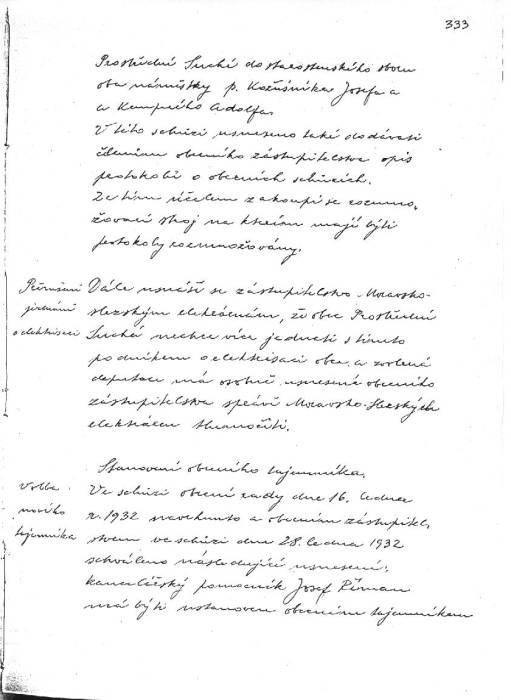 333
Prostřední Suché do starostenského sboru
oba náměstky p. Kožušníka Josefa a
a Kempného Adolfa.
V této schůzi usneseno také dodávati
členům obecního zástupitelstva opis
protokolů o obecních schůzích.
Za tím účelem zakoupí se rozmno-
žovací stroj na kterém mají býti
protokoly rozmnožovány.
Přerušení
jednání
o elektrisaci
Dále usnáší se zástupitelstvo Moravsko-
slezským elektrárnám, že obec Prostřední
Suchá nechce více jednati s tímto
podnikem o elektrisaci obce, a zvolená
deputace má osobně usnesené obecního
zástupitelstva správě Moravsko-Slezských
elektráren tlumočiti.
Volba
nového
tajemníka
Stanovení obecního tajemníka.
Ve schůzi obecní rady dne 16. ledna
r. 1932 navrhnuto a obecním zástupitel-
stvem ve schůzi dne 28. ledna 1932
schváleno následující usnesení:
kancelářský pomocník Josef Říman
má býti ustanoven obecním tajemníkem